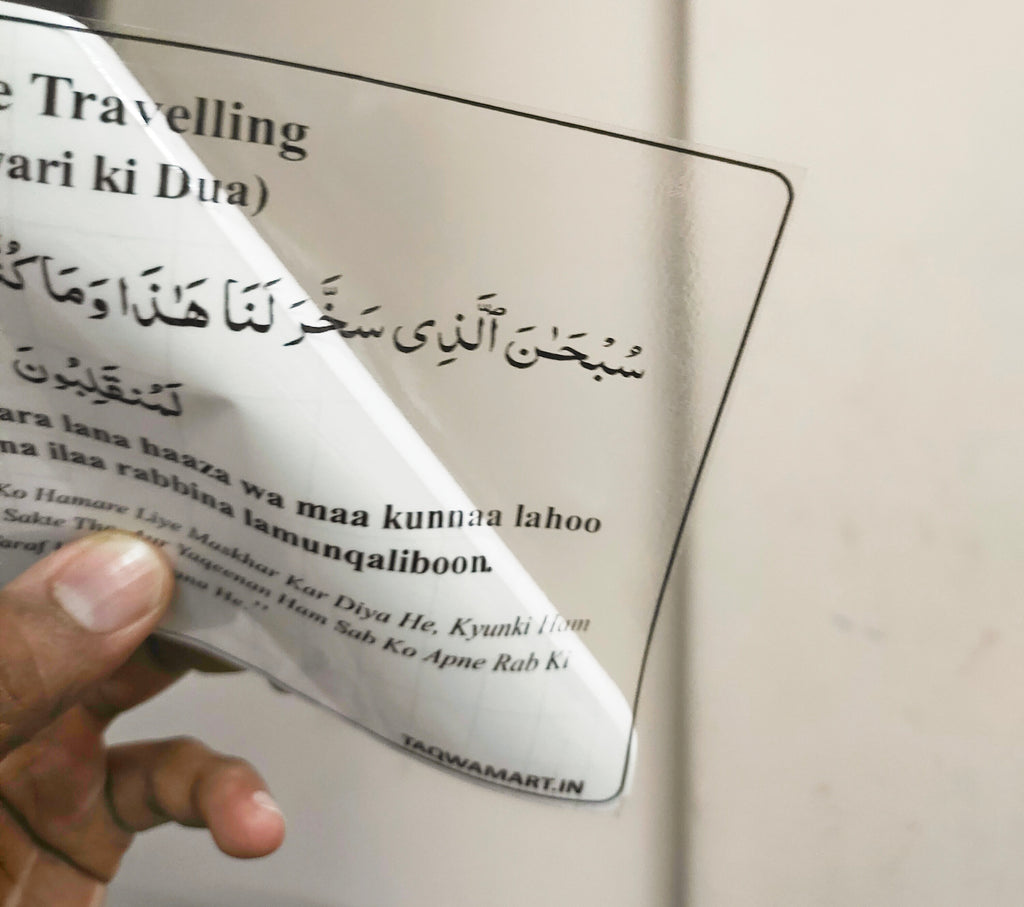 e Travelling
vari ki Dua)
سُبْحَٰنَ ٱلَّذِى سَخَّرَ لَنَا هَٰذَا وَمَا
لَمُنقَلِبُونَ
ara lana haaza wa maa kunnaa lahoo
na ilaa rabbina lamunqaliboon.
Ko Hamare Liye Maskhar Kar Diya He, Kyunki Ham
Sakte The Aur Yaqeenan Ham Sab Ko Apne Rab Ki
araf He."
TAQWAMART.IN